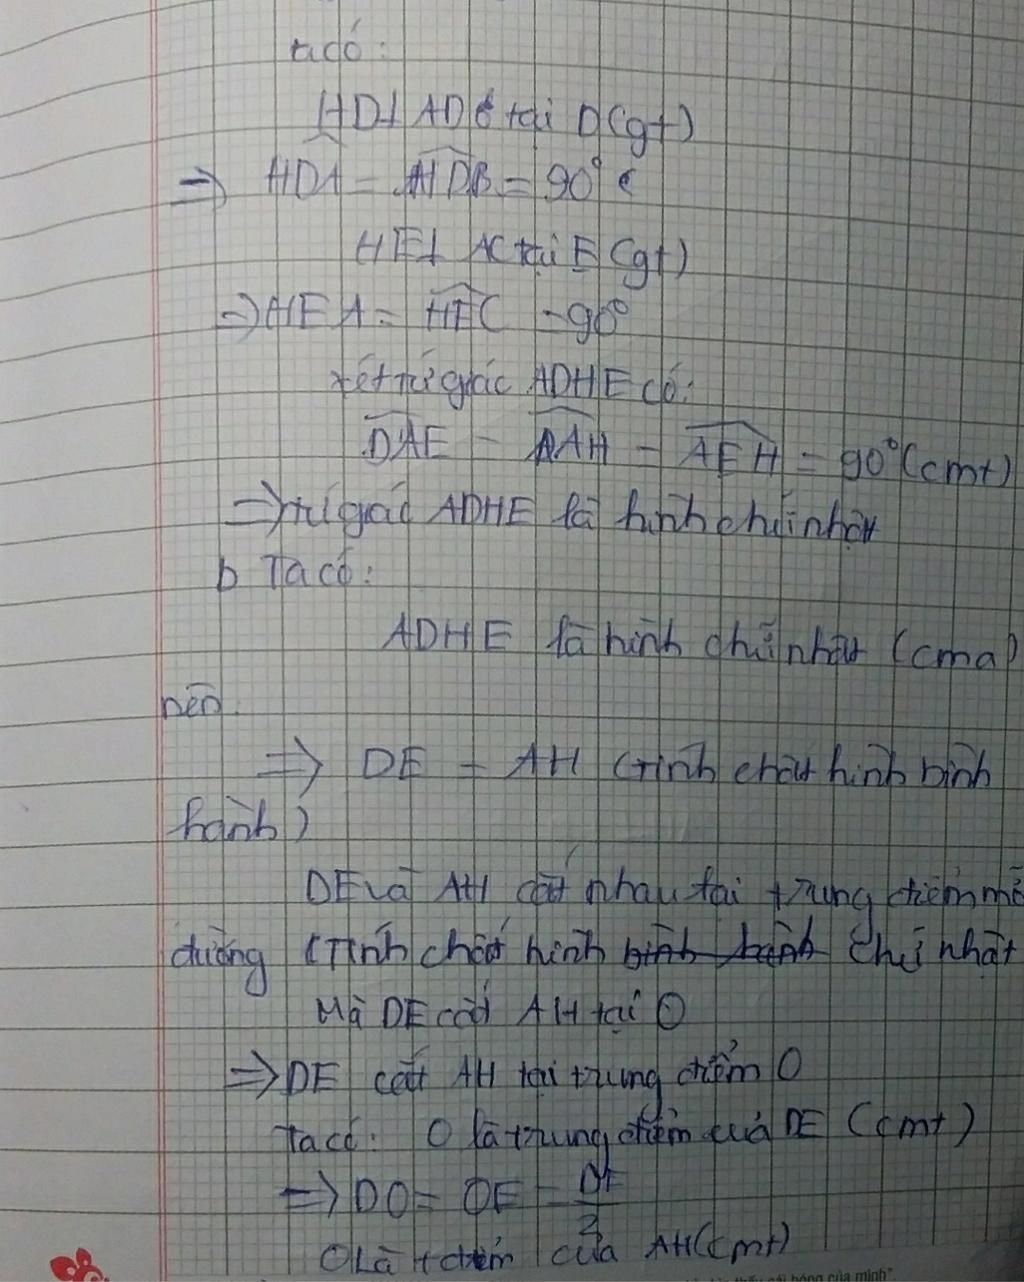 ta có:
HD⊥AD tại D(gt)
⇒ HDA = HDB = 90°
HE⊥ AC tại E (gt)
⇒HEA = HEC = 90°
xét tứ giác ADHE có:
DAE = AAH = AEH = 90°(cmt)
⇒tứ giác ADHE là hình chữ nhật
b Ta có:
ADHE là hình chữ nhật (cma)
nên.
⇒ DE = AH (tính chất hình bình
hành)
DE và AH cắt nhau tại trung điểm mỗ
đường (Tính chất hình bình hành chữ nhật
Mà DE cắt AH tại O
⇒DE cắt AH tại trung điểm O
Ta có: O là trung điểm của DE (cmt)
⇒ DO = OE = DE/2
O là t điểm của AH(cmt)